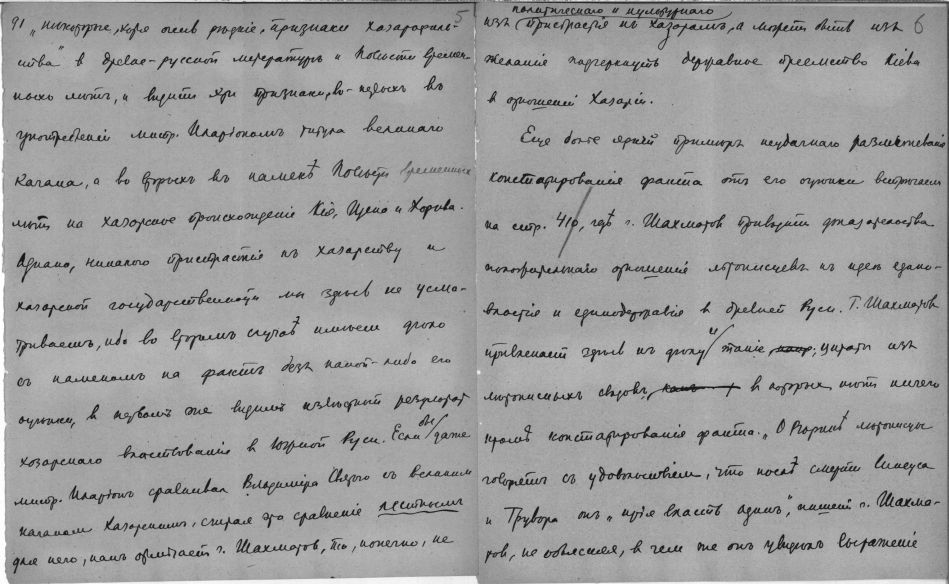 91 „нѣкоторые, хотя очень рѣдкіе, признаки хазарофиль-
5
ства" въ древне-русской литературѣ и Повѣсти Времен-
ныхъ лѣтъ, и видитъ эти признаки, во-первыхъ въ
употребленіи митр. Иларіономъ титула великаго
Кагана, а во вторыхъ въ намекѣ Повѣсти временныхъ
лѣтъ на хазарское происхожденіе Кія, Щека и Хорива.
Однако, никакого пристрастія къ хазарству и
хазарской государственности мы здѣсь не усма-
триваемъ, ибо во второмъ случаѣ имѣемъ дѣло
съ намекомъ на фактъ безъ какой-либо его
оцѣнки, въ первомъ же видимъ извѣстный результатъ
хозарскаго властвованія въ Южной Руси. Если бы даже
митр. Иларіонъ сравнивалъ Владиміра Святого съ великимъ
каганомъ Хазарскимъ, считая это сравненіе лестнымъ
для него, какъ отмѣчаетъ г. Шахматовъ, то, конечно, не
политическаго и культурнаго
изъ пристрастія къ Хазарамъ, а можетъ быть изъ
6
желанія подчеркнуть державное преемство Кіева
въ отношеніи Хазаріи.
Еще болѣе яркій примѣръ неудачнаго размежеванія
констатированія факта отъ его оцѣнки встрѣчаемъ
на стр. 410, гдѣ г. Шахматовъ приводитъ доказательства
положительнаго отношенія лѣтописцевъ къ идеѣ едино-
властія и единодержавія въ древней Руси. Г. Шахматовъ
привлекаетъ здѣсь къ дѣлу и такія, цитаты изъ
лѣтописныхъ сводовъ, въ которыхъ нѣтъ ничего
кромѣ констатированія факта. „О Рюрикѣ лѣтописцы
говорятъ съ удовольствіемъ, что послѣ смерти Синеуса
и Трувора онъ „прія власть единъ", пишетъ г. Шахма-
товъ, не объясняя, въ чемъ же онъ увидѣлъ выраженіе